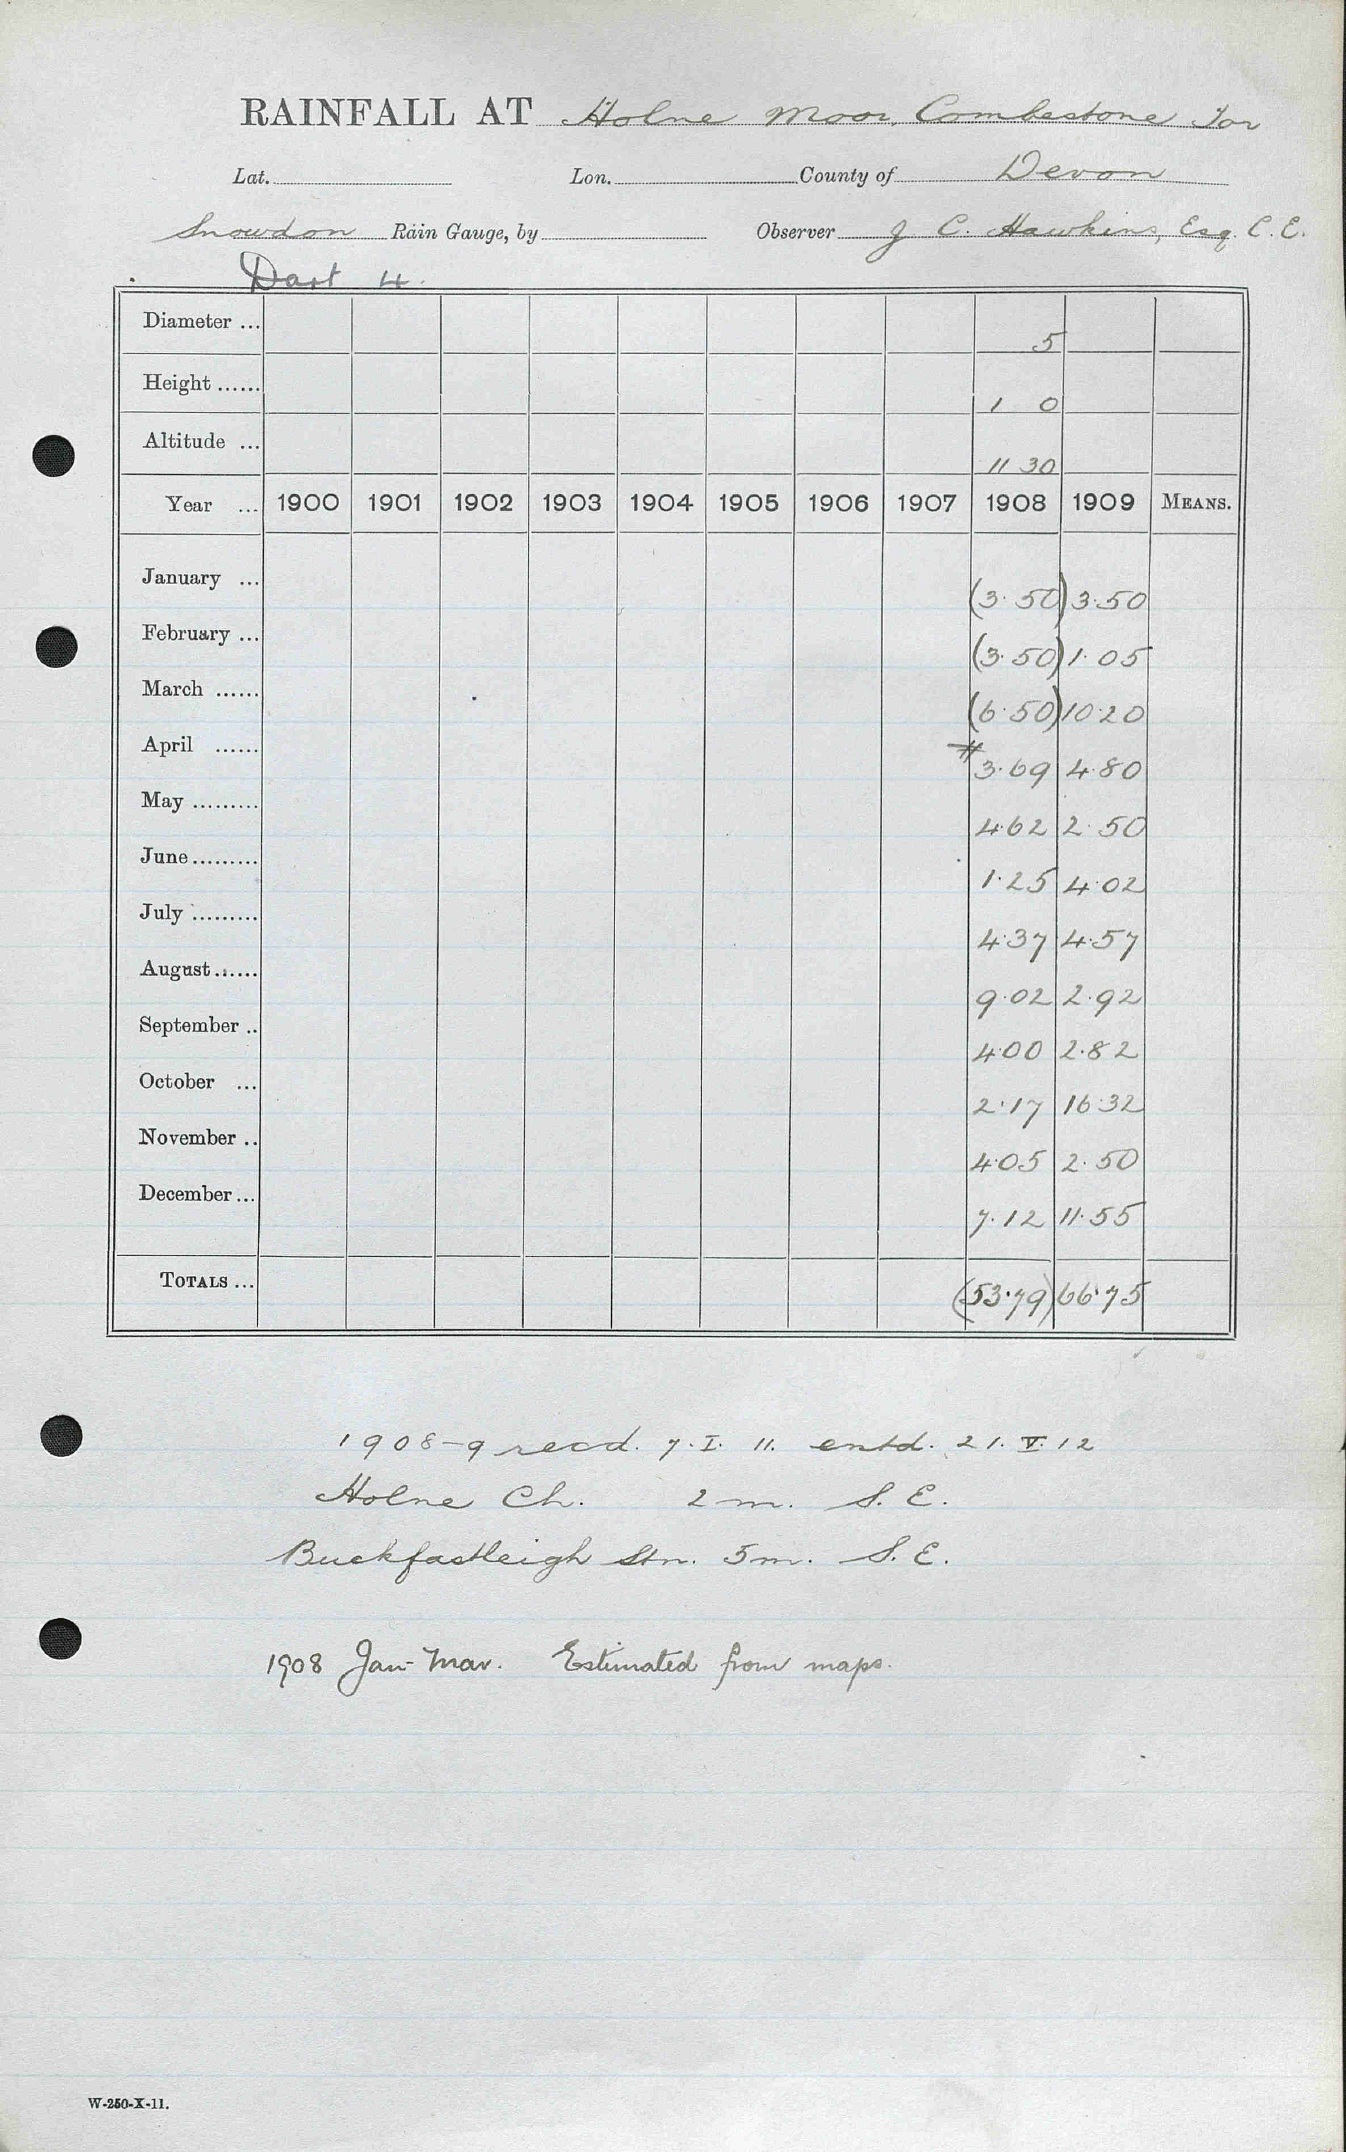 RAINFALL AT Holne Moor, Combestone Tor
Lat. Lon. County of Devon
Snowdon Rain Gauge, by Observer J C. Hawkins, Esq. C. E.
Dart 4.
Diameter ... 5
Height ...... 1 0
Altitude ... 1130
Year ... 1900 1901 1902 1903 1904 1905 1906 1907 1908 1909 MEANS.
January ... (3.50) 3.50
February ... (3.50) 1.05
March ...... (6.50) 10.20
April ...... # 3.69 4.80
May ......... 4.62 2.50
June ......... 1.25 4.02
July ......... 4.37 4.57
August ...... 9.02 2.92
September .. 4.00 2.82
October ... 2.17 16.32
November .. 4.05 2.50
December ... 7.12 11.55
TOTALS ... (53.79) 66.75
1908-9 recd. 7.I.11. entd. 21.V.12
Holne Ch. 2 m. S. E.
Buckfastleigh Stn. 5 m. S. E.
1908 Jan-Mar. Estimated from maps.
W-250-X-11.